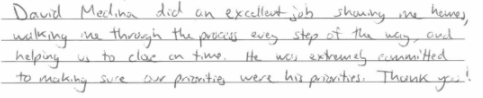 David Medina did an excellent job showing me homes,
walking me through the process every step of the way, and
helping us to close on time. He was extremely committed
to making sure our priorities were his priorities. Thank you!